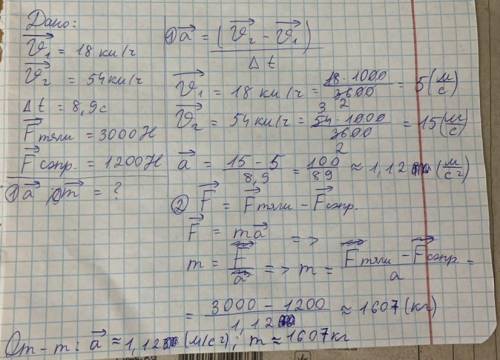 Дано:
v₁ = 18 км/ч
v₂ = 54 км/ч
Δt = 8,9 с
Fтяги = 3000 Н
Fсопр. = 1200 Н
① a ② m = ?
① a = (v₂ - v₁) / Δt
v₁ = 18 км/ч = 18·1000 / 3600 = 5 (м/с)
v₂ = 54 км/ч = 54·1000 / 3600 = 15 (м/с)
a = 15 - 5 / 8,9 = 100 / 89 ≈ 1,12 (м/с²)
② F = Fтяги - Fсопр.
F = ma =>
m = F / a => m = Fтяги - Fсопр / a =
= 3000 - 1200 / 1,12 ≈ 1607 (кг)
От-т: a ≈ 1,12 (м/с²); m ≈ 1607 кг